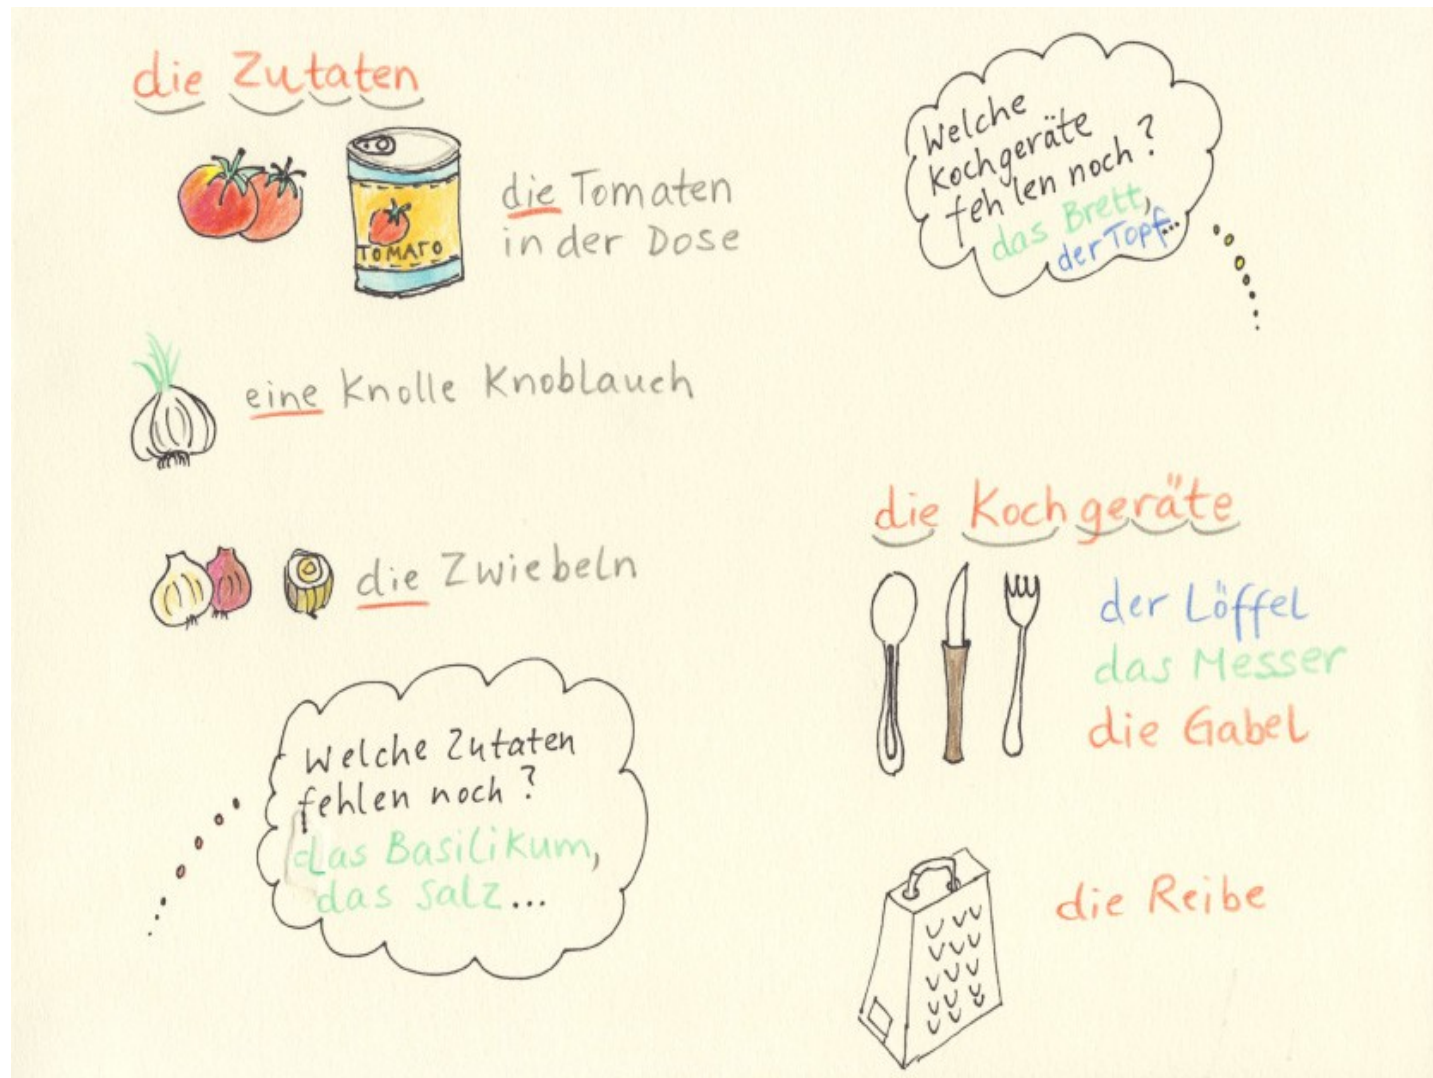 die Zutaten
TOMATO
die Tomaten
in der Dose
eine Knolle Knoblauch
die Zwiebeln
Welche Zutaten
fehlen noch?
das Basilikum,
das Salz...
Welche
Kochgeräte
fehlen noch?
das Brett,
der Topf...
die Kochgeräte
der Löffel
das Messer
die Gabel
die Reibe